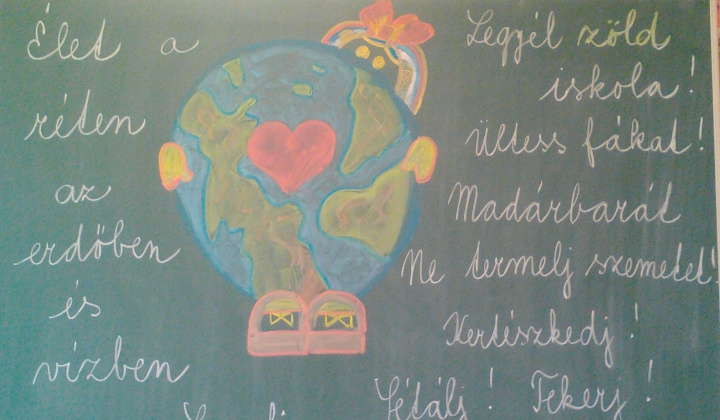 Élet a
réten
az
erdőben
és
vízben
Legyél zöld
iskola!
Ültess fákat!
Madárbarát
Ne termelj szemetet!
Kertészkedj!
Sétálj! Tekerj!